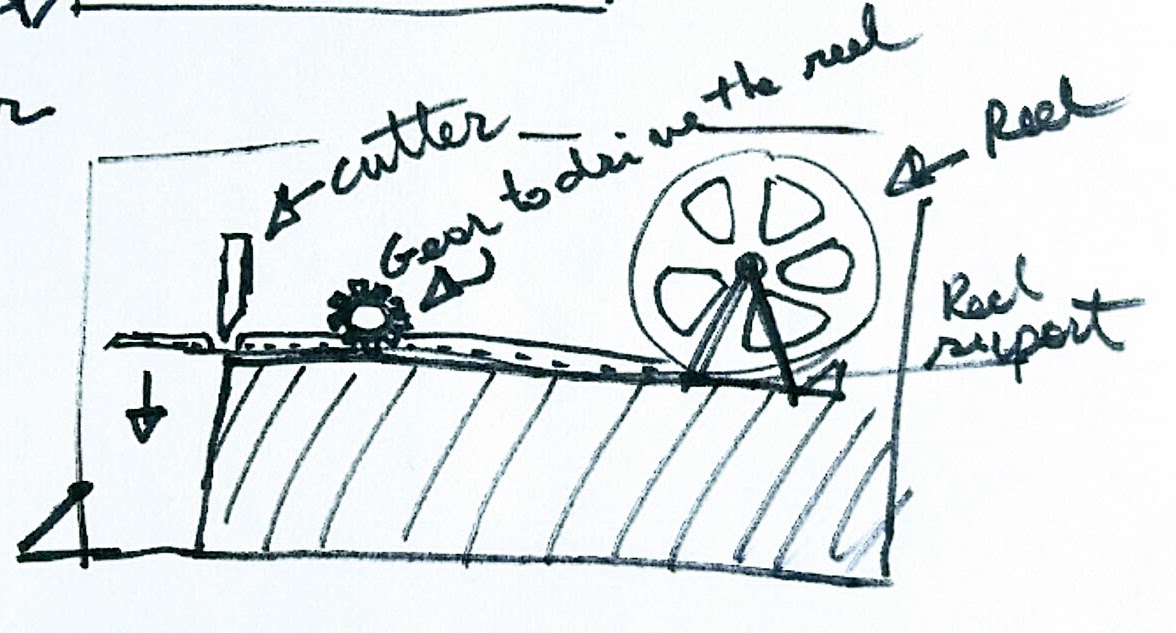 cutter
Gear to drive the reel
Reel
Reel
support